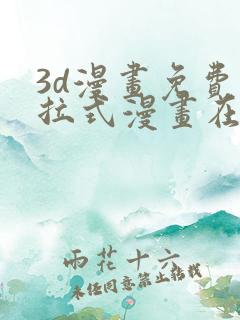 3d漫畫免費
拉式漫畫在
雨花十六
未經同意禁止轉載